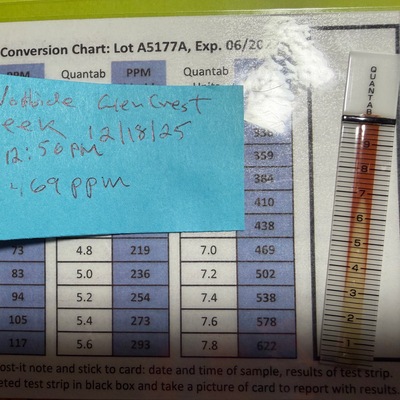 Conversion Chart: Lot A5177A, Exp. 06/20
PPM Quantab PPM Quantab
Glencrest
eek 12/18/25
12:50 PM
469 ppm
336
359
384
410
438
73 4.8 219 7.0 469
83 5.0 236 7.2 502
94 5.2 254 7.4 538
105 5.4 273 7.6 578
117 5.6 293 7.8 622
ost-it note and stick to card: date and time of sample, results of test strip.
eted test strip in black box and take a picture of card to report with results
QUANTAB
9
8
7
6
5
4
3
2
1